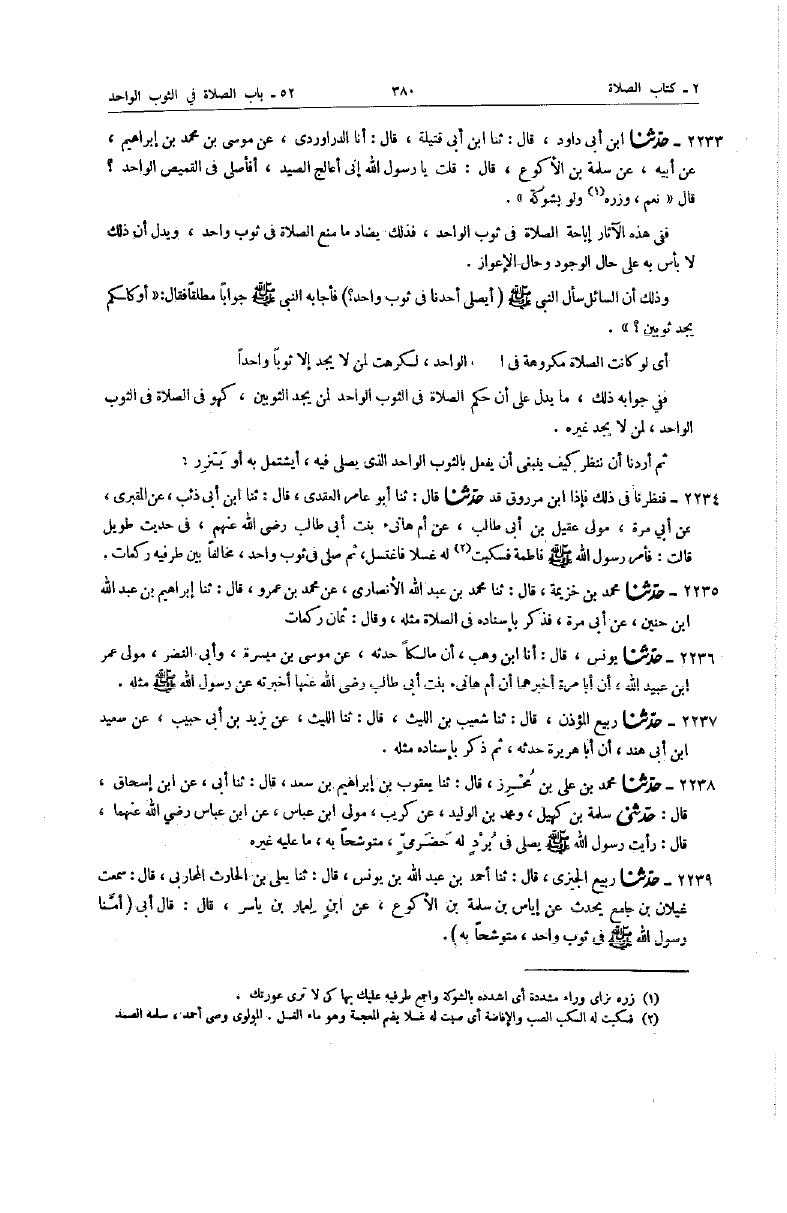 ٢ ـ كتاب الصلاة
٣٨٠
٥٢ ـ باب الصلاة في الثوب الواحد
٢٢٣٣ ـ حدّثنا ابن أبى داود ، قال : ثنا ابن أبى قتيلة ، قال : أنا الدراوردى ، عن موسى بن محمد بن إبراهيم ،
عن أبيه ، عن سلمة بن الأكوع ، قال : قلت يا رسول الله إنى أعالج الصيد ، أفأصلى فى القميص الواحد ؟
قال « نعم ، وزره(١) ولو بشوكة » .
ففى هذه الآثار إباحة الصلاة فى ثوب الواحد ، فذلك يضاد ما منع الصلاة فى ثوب واحد ، ويدل أن ذلك
لا بأس به على حال الوجود وحال الإعواز .
وذلك أن السائل سأل النبي ﷺ ( أيصلى أحدنا فى ثوب واحد؟) فأجابه النبي ﷺ جواباً مطلقاً فقال: « أو كاكم
يجد ثوبين ؟ » .
أى لو كانت الصلاة مكروهة فى ا الواحد ، لكرهت لمن لا يجد إلا ثوباً واحداً
ففي جوابه ذلك ، ما يدل على أن حكم الصلاة فى الثوب الواحد لمن يجد الثوبين ، كهو فى الصلاة فى الثوب
الواحد ، لمن لا يجد غيره .
ثم أردنا أن ننظر كيف ينبغى أن يفعل بالثوب الواحد الذى يصلى فيه ، أيشتمل به أو يَتَّزِر ؟
٢٢٣٤ ـ فنظرنا فى ذلك فإذا ابن مرزوق قد حدّثنا قال : ثنا أبو عامر العقدى ، قال : ثنا ابن أبى ذئب ، عن المقبرى ،
عن أبي مرة ، مولى عقيل بن أبى طالب ، عن أم هانىء بنت أبى طالب رضى الله عنهم ، فى حديث طويل
قالت : فأمر رسول الله ﷺ فاطمة فسكبت(٢) له غسلا فاغتسل، ثم صلى فى ثوب واحد ، مخالفاً بين طرفيه ركعات .
٢٢٣٥ ـ حدّثنا محمد بن خزيمة ، قال : ثنا محمد بن عبد الله الأنصارى ، عن محمد بن عمرو ، قال : ثنا إبراهيم بن عبد الله
ابن حنين ، عن أبى مرة ، فذكر بإسناده فى الصلاة مثله ، وقال : ثمان ركعات
٢٢٣٦ ـ حدّثنا يونس ، قال : أنا ابن وهب ، أن مالكاً حدثه ، عن موسى بن ميسرة ، وأبى النضر ، مولى عمر
ابن عبيد الله ، أن أبا مرة أخبرهما أن أم هانىء بنت أبى طالب رضى الله عنها أخبرته عن رسول الله ﷺ مثله .
٢٢٣٧ ـ حدّثنا ربيع المؤذن ، قال : ثنا شعيب بن الليث ، قال : ثنا الليث ، عن يزيد بن أبى حبيب ، عن سعيد
ابن أبى هند ، أن أبا هريرة حدثه ، ثم ذكر بإسناده مثله .
٢٢٣٨ ـ حدّثنا محمد بن على بن مُحْرِز ، قال : ثنا يعقوب بن إبراهيم بن سعد ، قال : ثنا أبى ، عن ابن إسحاق ،
قال : حدّثني سلمة بن كهيل ، ومحمد بن الوليد ، عن كريب ، مولى ابن عباس ، عن ابن عباس رضي الله عنهما ،
قال : رأيت رسول الله ﷺ يصلى فى بُرْدٍ له حَضْرَمىّ ، متوشحاً به ، ما عليه غيره
٢٢٣٩ ـ حدّثنا ربيع الجيزى ، قال : ثنا أحمد بن عبد الله بن يونس ، قال : ثنا يعلى بن الحارث المحاربى ، قال : سمعت
غيلان بن جامع يحدث عن إياس بن سلمة بن الأكوع ، عن ابنٍ لعمار بن ياسر ، قال : قال أبى ( أمَّنا
رسول الله ﷺ فى ثوب واحد ، متوشحاً به ) .
(١) زره بزاى وراء مشددة أى اشدده بالشوكة واجمع طرفيه عليك بها كى لا ترى عورتك .
(٢) فسكبت له السكب الصب والإفاضة أى صبت له غسلا بضم المعجمة وهو ماء الغسل . المولوى وصى أحمد ، سلمه الصمد